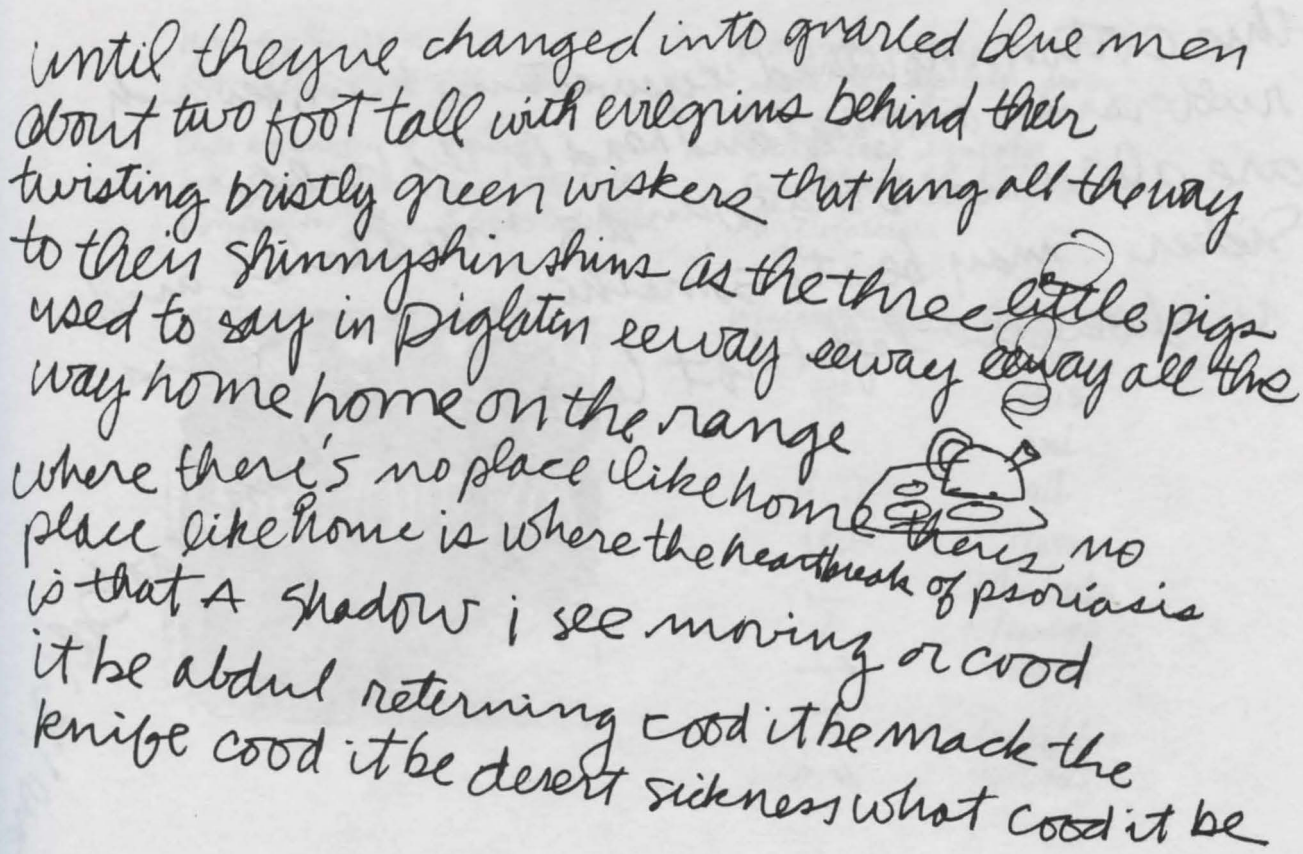 until theyve changed into gnarled blue men
about two foot tall with evilgrins behind their
twisting bristly green wiskers that hang all theway
to their shinnyshinshins as the three little pigs
used to say in piglatin eeway eeway eeway all the
way home home on the range
where there's no place like home theres no
place like home is where the heartbreak of psoriasis
is that A shadow i see moving or cood
it be abdul reterning cood it be mack the
knife cood it be desert sickness what cood it be